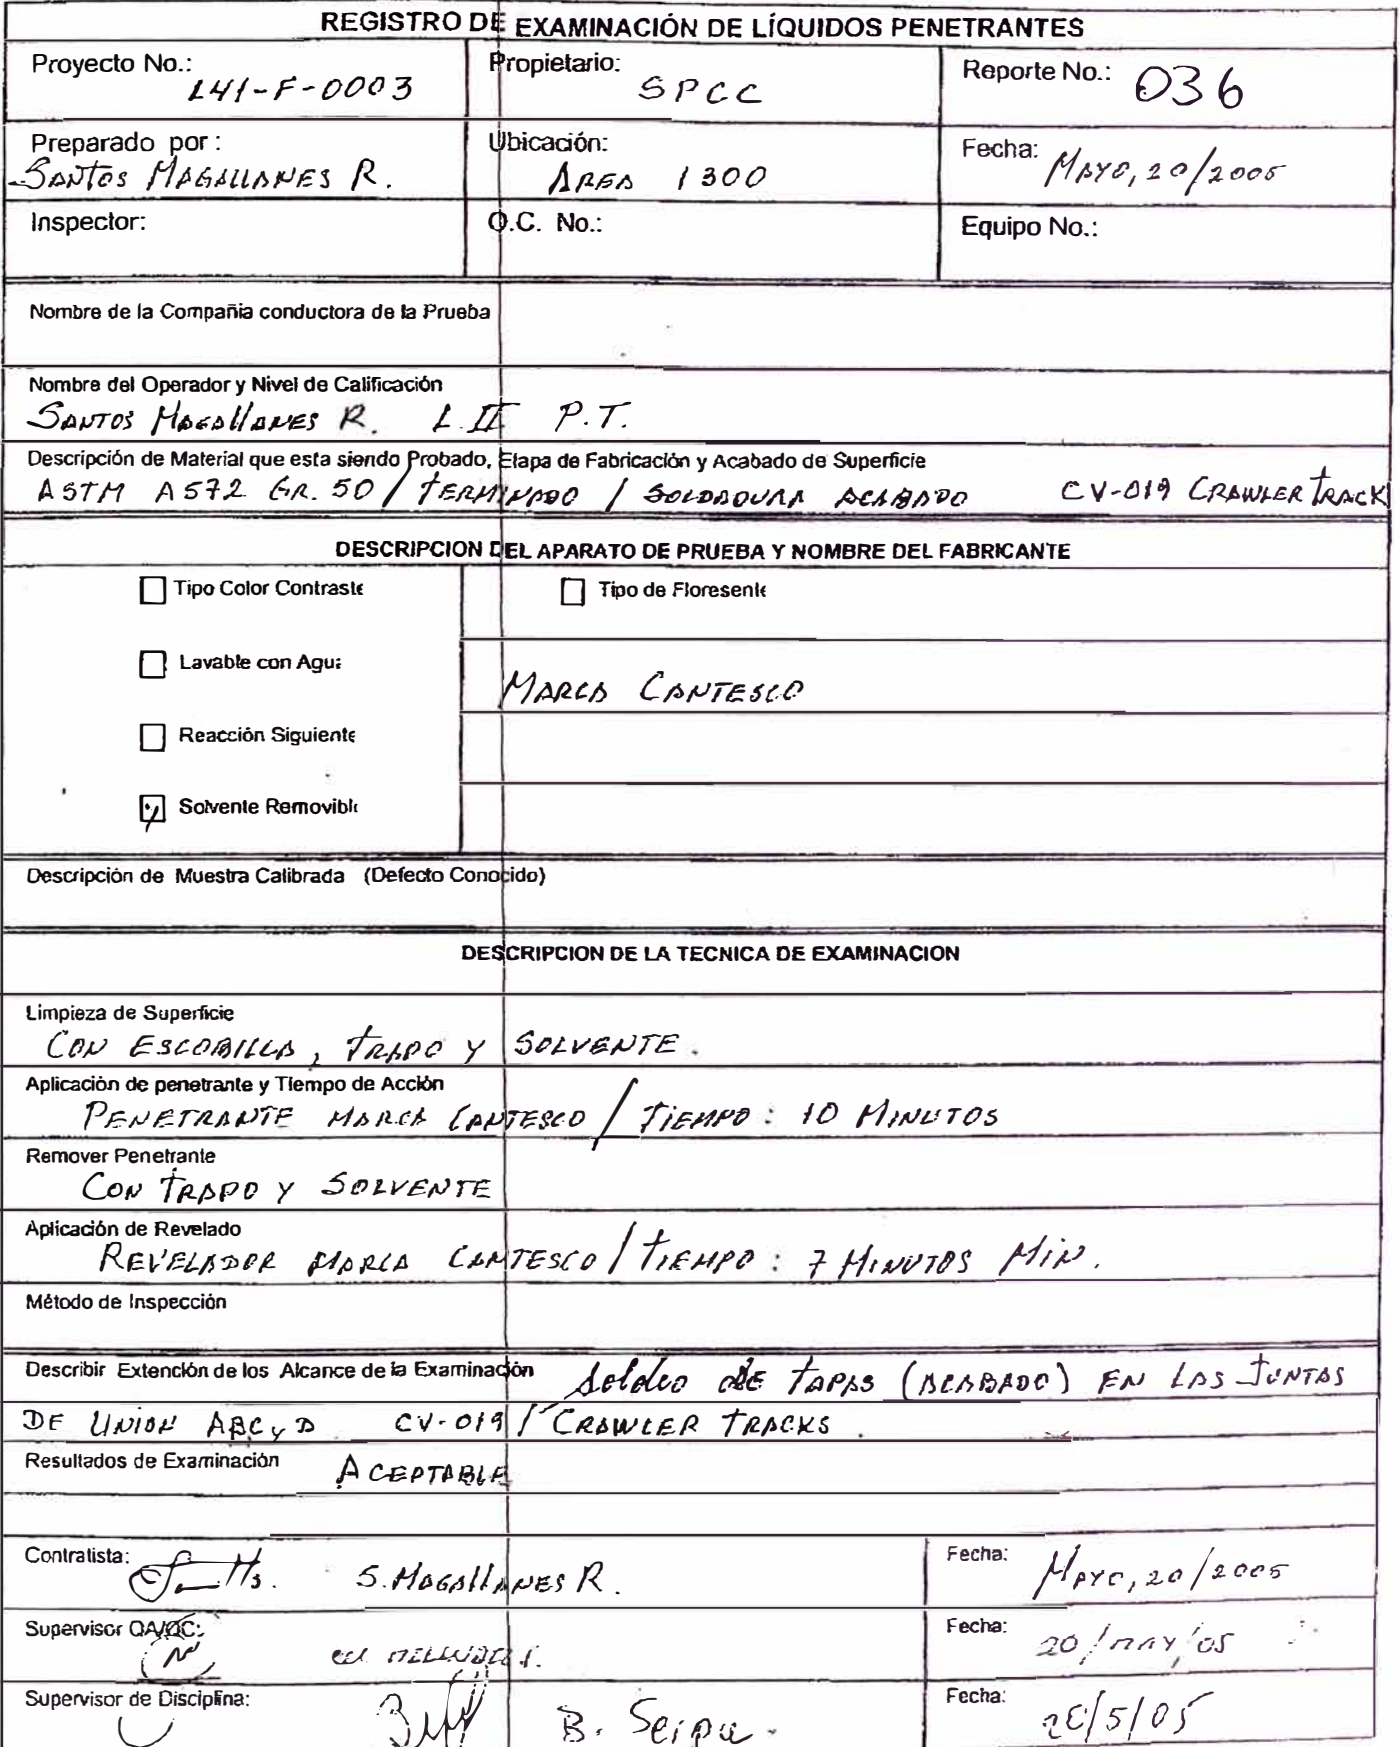 REGISTRO DE EXAMINACIÓN DE LÍQUIDOS PENETRANTES
Proyecto No.: Propietario: Reporte No.: 036
L41-F-0003 SPCC
Preparado por : Ubicación: Fecha: MAYO, 20/2005
SANTOS MAGALLANES R. AREA 1300
Inspector: O.C. No.: Equipo No.:
Nombre de la Compañia conductora de la Prueba
Nombre del Operador y Nivel de Calificación
SANTOS MAGALLANES R. L.II P.T.
Descripción de Material que esta siendo Probado, Etapa de Fabricación y Acabado de Superficie
ASTM A572 GR. 50 / TERMINADO / SOLDADURA ACABADO CV-019 CRAWLER TRACK
DESCRIPCION DEL APARATO DE PRUEBA Y NOMBRE DEL FABRICANTE
Tipo Color Contraste Tipo de Floresente
Lavable con Agua
MARCA CANTESCO
Reacción Siguiente
Solvente Removible
Descripción de Muestra Calibrada (Defecto Conocido)
DESCRIPCION DE LA TECNICA DE EXAMINACION
Limpieza de Superficie
CON ESCOBILLA, TRAPO Y SOLVENTE.
Aplicación de penetrante y Tiempo de Acción
PENETRANTE MARCA CANTESCO / TIEMPO : 10 MINUTOS
Remover Penetrante
CON TRAPO Y SOLVENTE
Aplicación de Revelado
REVELADOR MARCA CANTESCO / TIEMPO : 7 MINUTOS MIN.
Método de Inspección
Describir Extención de los Alcance de la Examinación Soldeo DE TAPAS (ACABADO) EN LAS JUNTAS
DE UNION ABC y D CV-019 / CRAWLER TRACKS.
Resultados de Examinación ACEPTABLE
Contratista: S. MAGALLANES R. Fecha: MAYO, 20/2005
Supervisor QA/QC: Fecha: 20/MAY/05
Supervisor de Disciplina: B. Fecha: 20/5/05